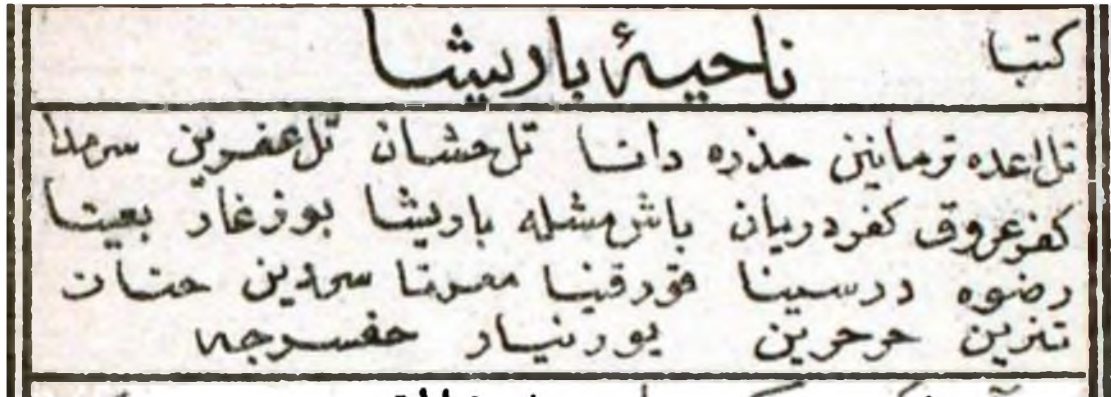 كتبا ناحیهٔ باریشا
تل‌اعده ترمانین حذره دانا تل‌حشان تل‌عفرین سرمدا
كفرعروق كفردریان باش‌مشله باریشا بوزغار بعیتا
رضوه دیرسیتا قورقنیا معرتا سحدین حتان
تنرین حرحرین یورنیار حفسرجه